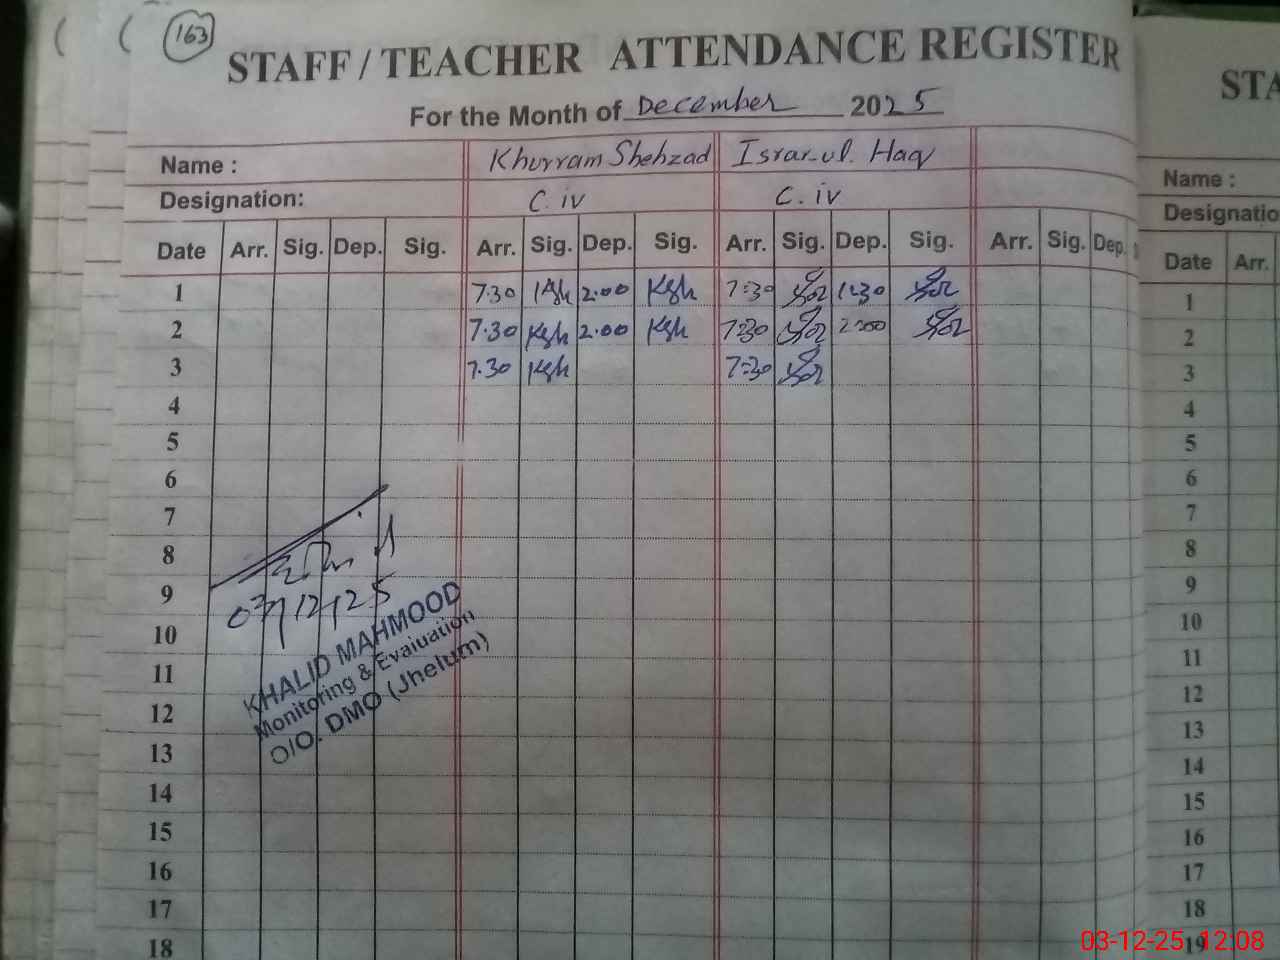 163
STAFF / TEACHER ATTENDANCE REGISTER
For the Month of December 2025
Name : Khurram Shehzad Israr-ul. Haq
Designation: C. iv C. iv
Date Arr. Sig. Dep. Sig. Arr. Sig. Dep. Sig. Arr. Sig. Dep. Sig. Arr. Sig. Dep.
1 7.30 Ksh 2.00 Ksh 7:30 1:30
2 7.30 Ksh 2.00 Ksh 7:30 2:00
3 7.30 Ksh 7:30
4
5
6
7
8
9
03/12/25
10
11
12
13
14
15
16
17
18
KHALID MAHMOOD
Monitoring & Evaluation
O/O. DMO (Jhelum)
STA
Name :
Designatio
Date Arr.
1
2
3
4
5
6
7
8
9
10
11
12
13
14
15
16
17
18
19
03-12-25 12:08